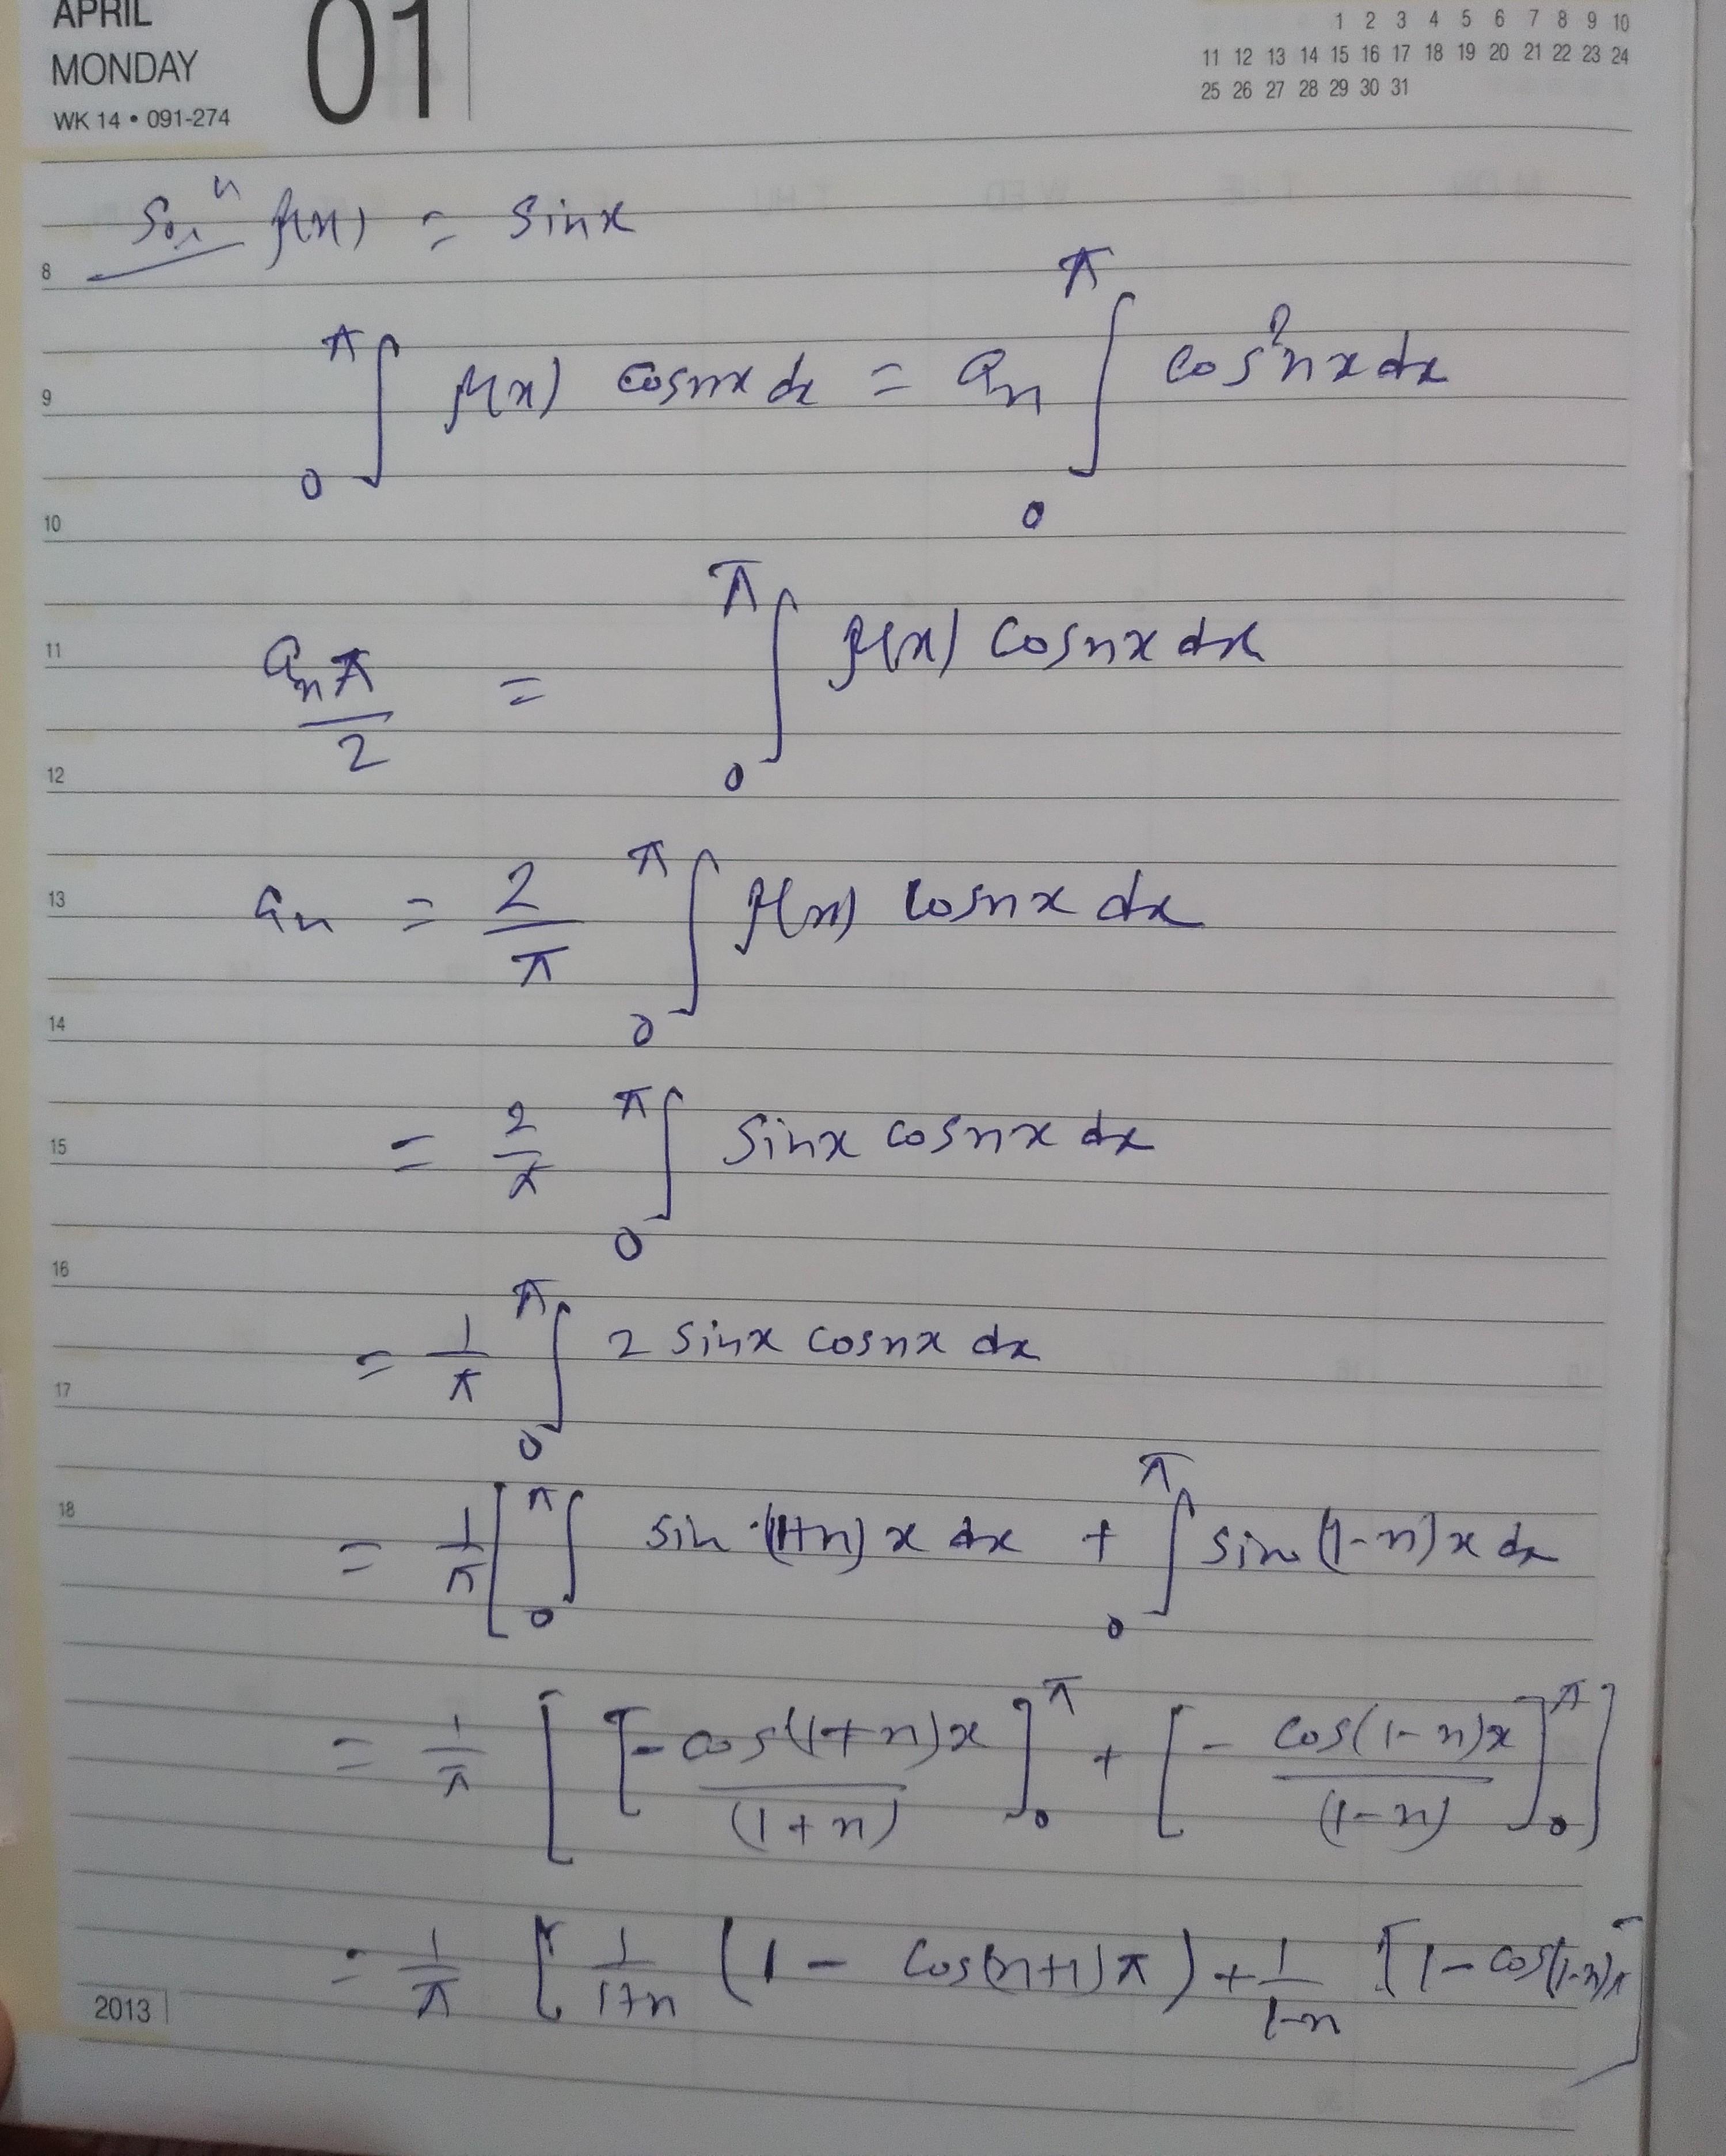 APRIL
MONDAY
WK 14 • 091-274
01
1 2 3 4 5 6 7 8 9 10
11 12 13 14 15 16 17 18 19 20 21 22 23 24
25 26 27 28 29 30 31
Solⁿ f(x) = sinx
8
∫₀^π f(x) cosnx dx = aₙ ∫₀^π cos²nx dx
9
10
aₙπ/2 = ∫₀^π f(x) cosnx dx
11
12
aₙ = 2/π ∫₀^π f(x) cosnx dx
13
14
= 2/π ∫₀^π sinx cosnx dx
15
16
= 1/π ∫₀^π 2 sinx cosnx dx
17
= 1/π [ ∫₀^π sin (1+n) x dx + ∫₀^π sin (1-n) x dx
18
= 1/π [ [ - cos(1+n)x / (1+n) ]₀^π + [ - cos(1-n)x / (1-n) ]₀^π ]
= 1/π [ 1/1+n (1 - cos(n+1)π) + 1/1-n [1 - cos(1-n)π ]
2013